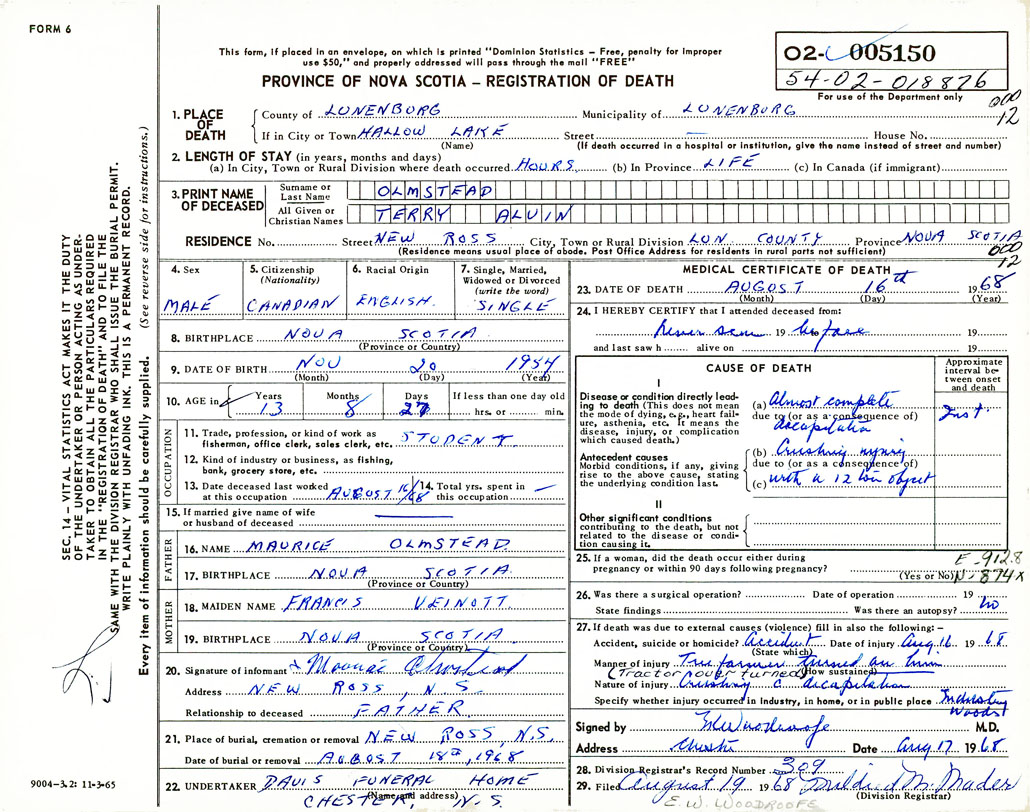 FORM 6
This form, if placed in an envelope, on which is printed "Dominion Statistics – Free, penalty for improper
use $50," and properly addressed will pass through the mail "FREE"
PROVINCE OF NOVA SCOTIA – REGISTRATION OF DEATH
02- 005150
54-02-018876
For use of the Department only
000
12
1. PLACE OF DEATH
County of LUNENBURG Municipality of LUNENBURG
If in City or Town HALLOW LAKE Street — House No.
(Name) (If death occurred in a hospital or institution, give the name instead of street and number)
2. LENGTH OF STAY (in years, months and days)
(a) In City, Town or Rural Division where death occurred HOURS (b) In Province LIFE (c) In Canada (if immigrant)
3. PRINT NAME OF DECEASED
Surname or Last Name OLMSTEAD
All Given or Christian Names TERRY ALVIN
RESIDENCE No. Street NEW ROSS City, Town or Rural Division LUN. COUNTY Province NOVA SCOTIA
(Residence means usual place of abode. Post Office Address for residents in rural parts not sufficient)
000
12
4. Sex MALE
5. Citizenship (Nationality) CANADIAN
6. Racial Origin ENGLISH.
7. Single, Married, Widowed or Divorced (write the word) SINGLE
8. BIRTHPLACE NOVA SCOTIA
(Province or Country)
9. DATE OF BIRTH NOV 20 1954
(Month) (Day) (Year)
10. AGE in Years 13 Months 8 Days 27 If less than one day old hrs. or min.
OCCUPATION
11. Trade, profession, or kind of work as fisherman, office clerk, sales clerk, etc. STUDENT
12. Kind of industry or business, as fishing, bank, grocery store, etc.
13. Date deceased last worked at this occupation AUGUST 16/68
14. Total yrs. spent in this occupation —
15. If married give name of wife or husband of deceased —
FATHER
16. NAME MAURICE OLMSTEAD
17. BIRTHPLACE NOVA SCOTIA
(Province or Country)
MOTHER
18. MAIDEN NAME FRANCIS VEINOTT
19. BIRTHPLACE NOVA SCOTIA
(Province or Country)
20. Signature of informant
Address NEW ROSS, N.S.
Relationship to deceased FATHER
21. Place of burial, cremation or removal NEW ROSS, N.S.
Date of burial or removal AUGUST 18th, 1968
22. UNDERTAKER DAVIS FUNERAL HOME
(Name and address)
CHESTER, N.S.
MEDICAL CERTIFICATE OF DEATH
23. DATE OF DEATH AUGUST 16th 1968
(Month) (Day) (Year)
24. I HEREBY CERTIFY that I attended deceased from:
never seen 19 before 19
and last saw h alive on 19
CAUSE OF DEATH
Approximate interval between onset and death
I
Disease or condition directly leading to death (This does not mean the mode of dying, e.g., heart failure, asthenia, etc. It means the disease, injury, or complication which caused death.)
(a) Almost complete
due to (or as a consequence of)
decapitation
Inst.
Antecedent causes
Morbid conditions, if any, giving rise to the above cause, stating the underlying condition last.
(b) Crushing injury
due to (or as a consequence of)
(c) with a 12 ton object
II
Other significant conditions
contributing to the death, but not related to the disease or condition causing it.
25. If a woman, did the death occur either during pregnancy or within 90 days following pregnancy?
(Yes or No)
E-912.8
N-874x
26. Was there a surgical operation? Date of operation 19
State findings Was there an autopsy? No
27. If death was due to external causes (violence) fill in also the following:–
Accident, suicide or homicide? Accident Date of injury Aug. 16 1968
(State which)
Manner of injury Tree farmer turned on him
(How sustained)
(Tractor over turned)
Nature of injury Crushing c decapitation
Specify whether injury occurred in industry, in home, or in public place Industry
Woods
Signed by M.D.
Address Chester Date Aug 17 1968
28. Division Registrar's Record Number 309
29. Filed August 19 1968 Mildred M. Mader
(Division Registrar)
E.W. WOODROOFE
SEC. 14 – VITAL STATISTICS ACT MAKES IT THE DUTY
OF THE UNDERTAKER OR PERSON ACTING AS UNDER-
TAKER TO OBTAIN ALL THE PARTICULARS REQUIRED
IN THE "REGISTRATION OF DEATH" AND TO FILE THE
SAME WITH THE DIVISION REGISTRAR WHO SHALL ISSUE THE BURIAL PERMIT.
WRITE PLAINLY WITH UNFADING INK. THIS IS A PERMANENT RECORD.
Every item of information should be carefully supplied. (See reverse side for instructions.)
9004–3.2: 11-3-65